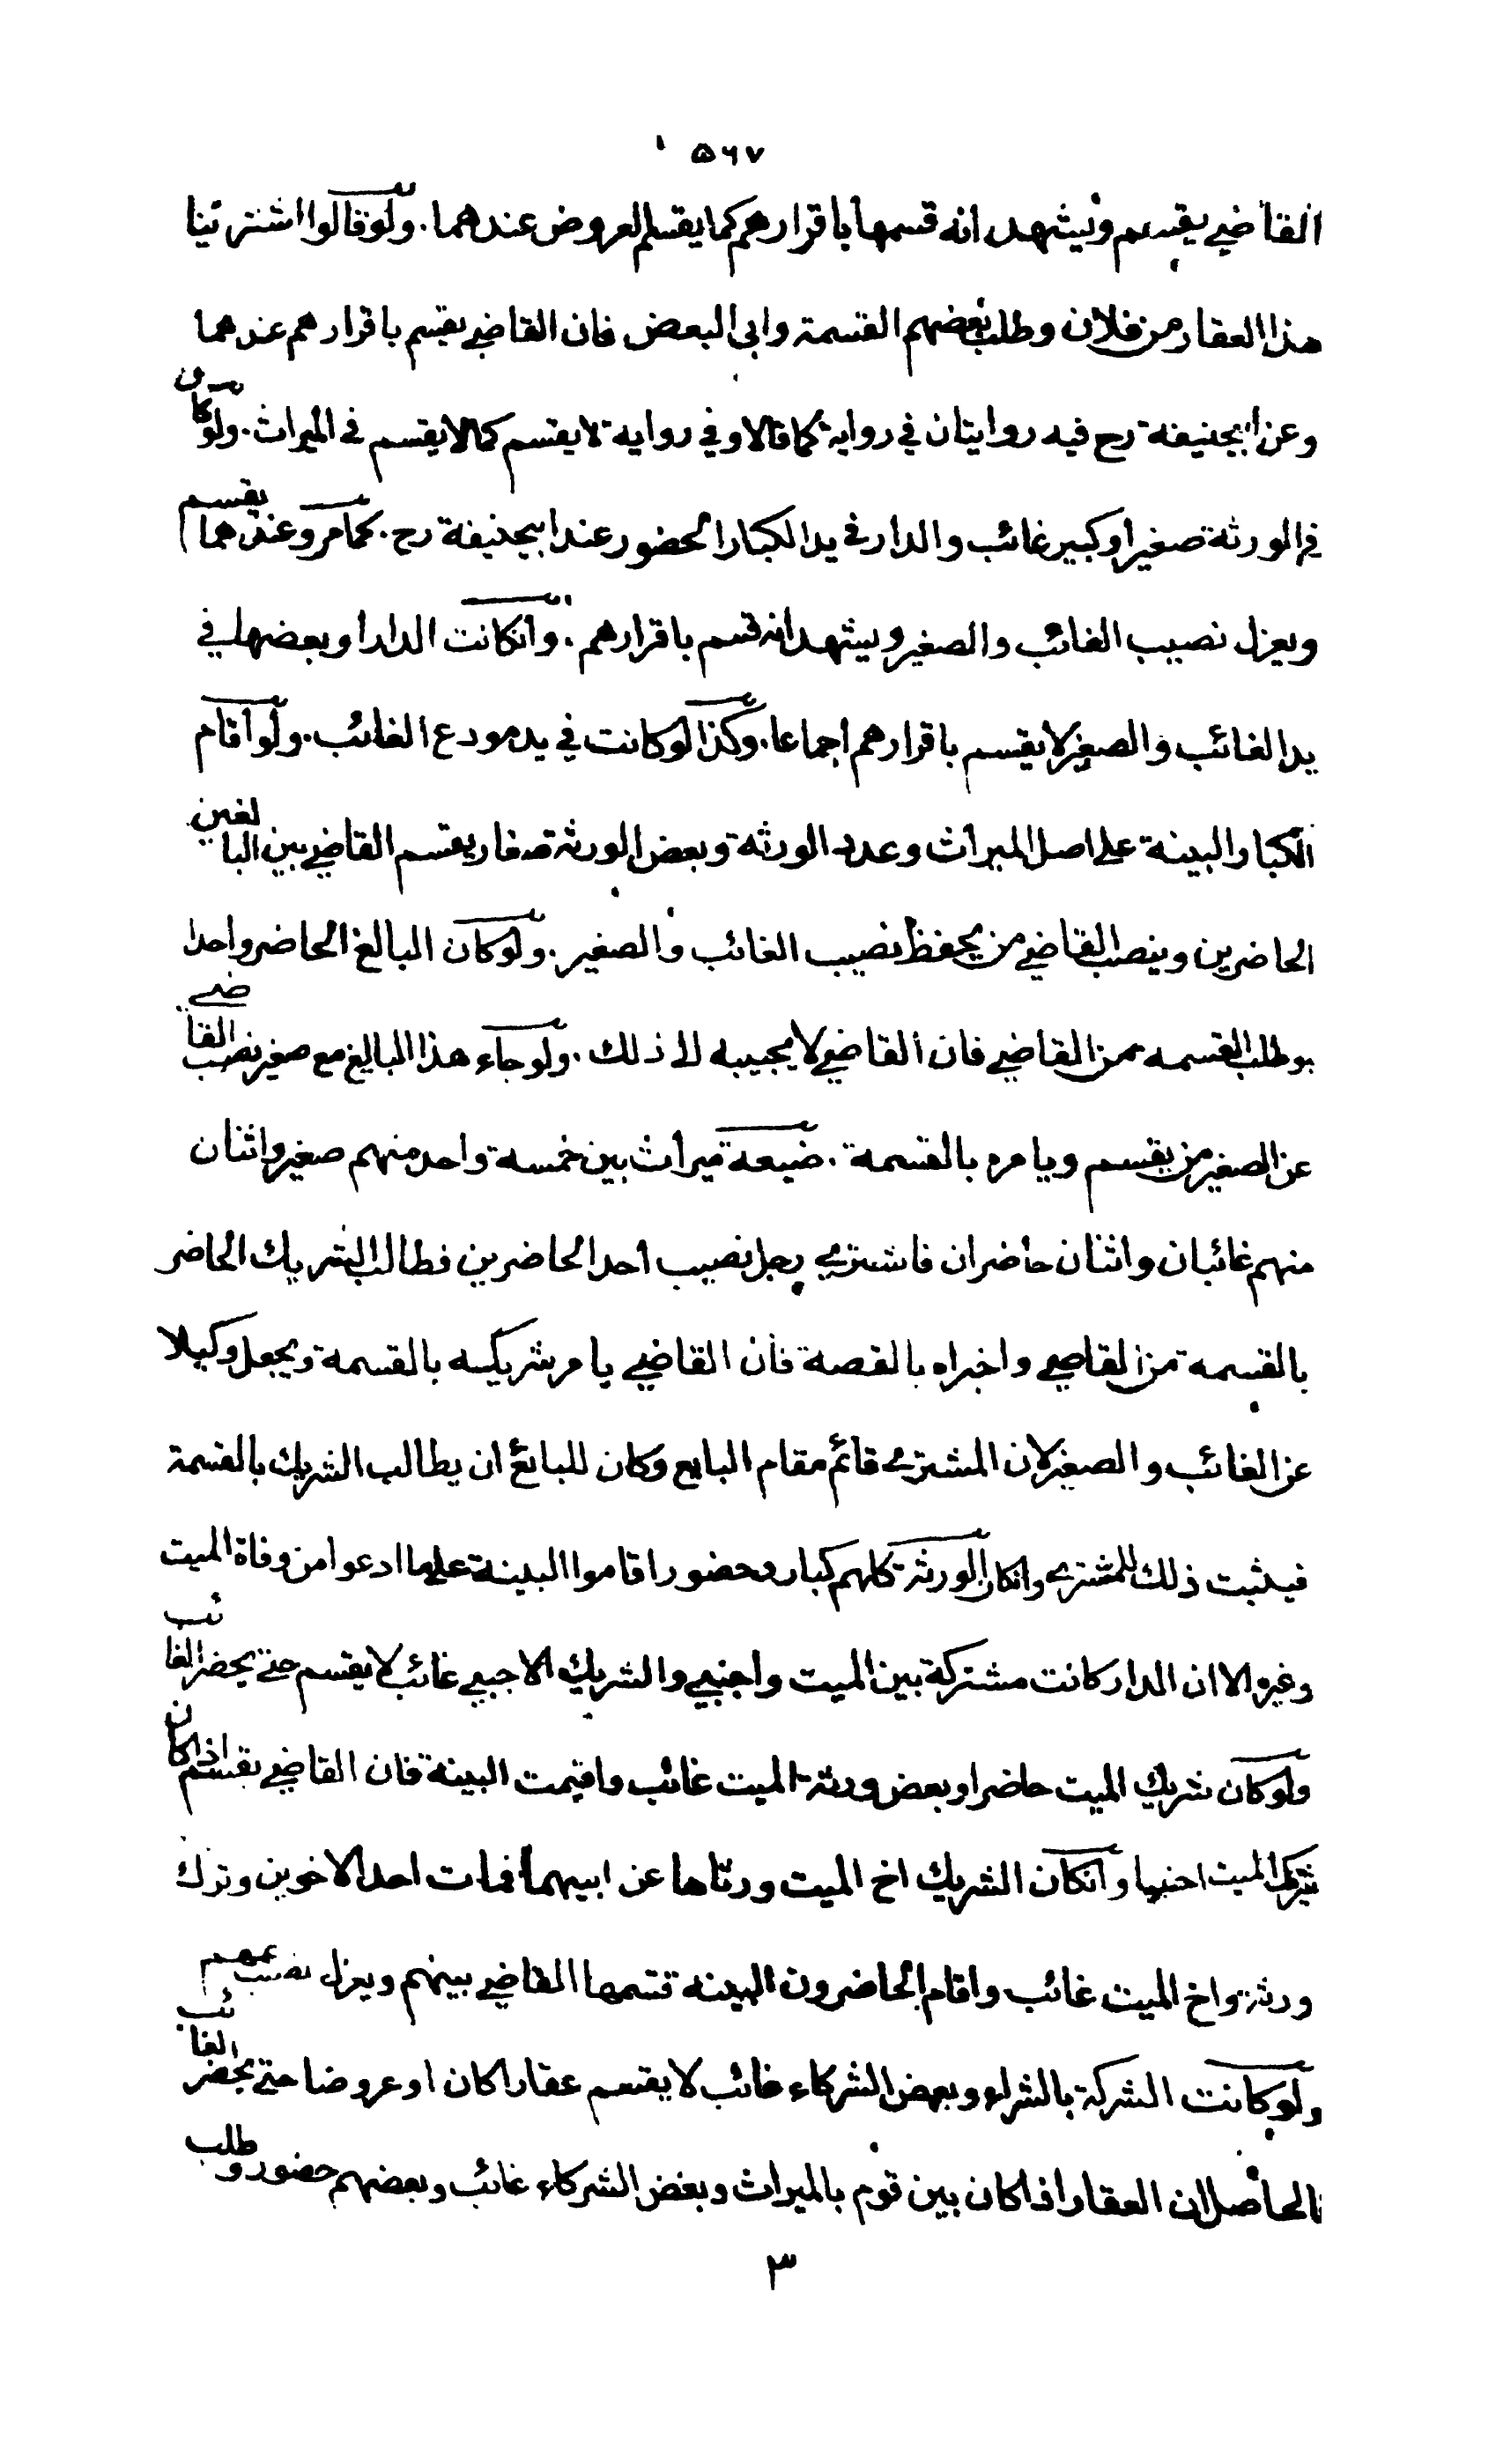 ۵۶۷
القاضي يقسم ويشهد انه قسمها باقرارهم كما يقسم العروض عندهما. ولوقالوا اشترينا
هذا العقار من فلان وطلب بعضهم القسمة وابى البعض فان القاضي يقسم باقرارهم عندهما
وعن ابيحنيفة رح فيه روايتان في رواية كما قالا وفي رواية لا يقسم كما لا يقسم في الميراث. ولوكان
في الورثة صغير اوكبير غائب والدار في يد الكبار الحضور عند ابيحنيفة رح. كما مر وعندهما يقسم
ويعزل نصيب الغائب والصغير ويشهد انه قسم باقرارهم. وانكانت الدار او بعضها في
يد الغائب والصغير لا يقسم باقرارهم اجماعا. وكذا لوكانت في يد مودع الغائب. ولو اقام
الكبار البينة على اصل الميراث وعدد الورثة وبعض الورثة صغار يقسم القاضي بين البالغين
الحاضرين وينصب القاضي من يحفظ نصيب الغائب والصغير. ولوكان البالغ الحاضر واحدا
وطلب القسمه من القاضي فان القاضي لا يجيبه الى ذلك. ولوجاء هذا البالغ مع صغير نصب القاضي
عن الصغير من يقسم ويامره بالقسمة. ضيعة ميراث بين خمسة واحد منهم صغير واثنان
منهم غائبان واثنان حاضران فاشترى رجل نصيب احد الحاضرين فطالب الشريك الحاضر
بالقسمة من القاضي واخبراه بالقصة فان القاضي يامر شريكه بالقسمة ويجعل وكيلا
عن الغائب والصغير لان المشترى قائم مقام البايع وكان للبائع ان يطالب الشريك بالقسمة
فيثبت ذلك للمشترى وانكان الورثة كلهم كبار وحضورا قاموا البينة على ما ادعوا من وفاة الميت
وغيره الا ان الدار كانت مشتركة بين الميت واجنبي والشريك الاجنبي غائب لا يقسم حتى يحضر الغائب
ولوكان شريك الميت حاضرا وبعض ورثة الميت غائب واقيمت البينة فان القاضي يقسم اذا كان
شريك الميت اجنبيا وانكان الشريك اخ الميت ورثاها عن ابيهما فمات احد الاخوين وترك
ورثة واخ الميت غائب واقام الحاضرون البينه قسمها القاضي بينهم ويعزل نصيب عمهم
ولوكانت الشركة بالشراء وبعض الشركاء غائب لا يقسم عقارا كان او عروضا حتى يحضر الغائب
فالحاصل ان العقار اذا كان بين قوم بالميراث وبعض الشركاء غائب وبعضهم حضور وطلب
۳